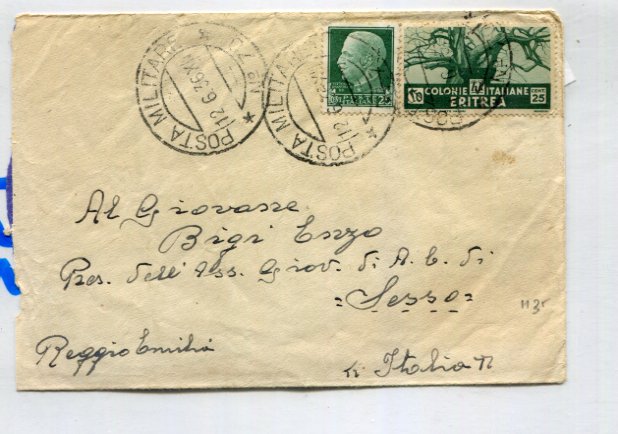 POSTA MILITARE
12.6.36.XIV
POSTA MILITARE
25
COLONIE ITALIANE
ERITREA
CENT. 25
Al Giovane
Bigi Enzo
Pres. dell' Ass. Giov. di A. C. di
= Sesso =
1135
Reggio Emilia
Italia